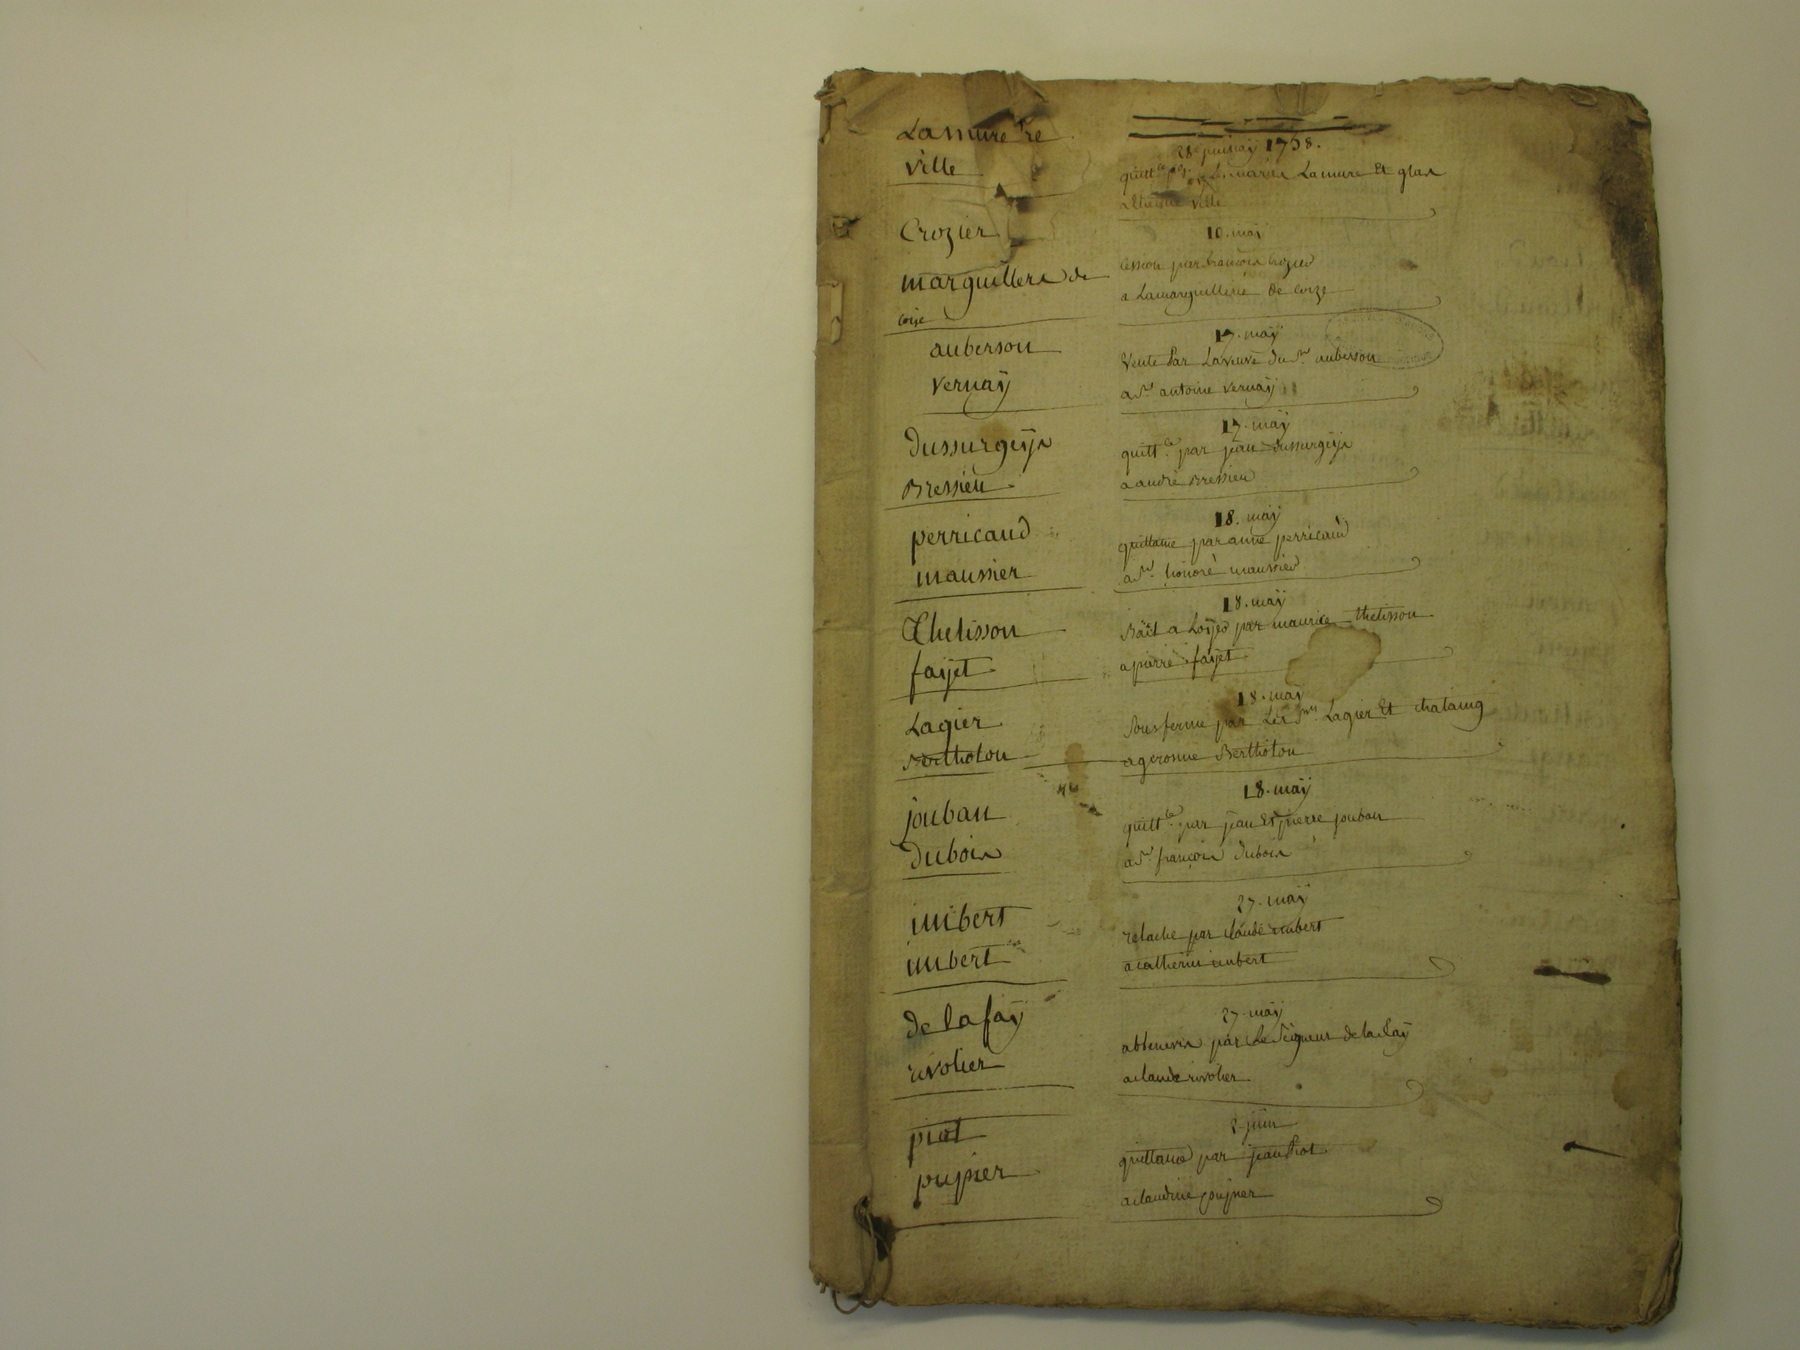 Lamure
ville
1758.
quitt.ce Lamure Et glas
ville
Crozier
marguillers de
coize
10. maÿ
cession par françois Crozier
a Lamarguillerie de coize
auberson
vernaÿ
17. maÿ
vente Par La veuve du Sr. auberson
a Sr. antoine vernaÿ
dussurgeÿs
Bressieu
17. maÿ
quitt.ce par jean dussurgeÿs
a andré Bressieu
perricaud
maussier
18. maÿ
quittance par anne perricaud
a Sr. honoré maussier
Thelisson
faÿet
18. maÿ
Bail a Loÿer par maurice thelisson
a pierre faÿet
Lagier
Bertholon
18. maÿ
sousferme par Les Srs. Lagier Et chataing
a gerosme Bertholon
jouban
dubois
18. maÿ
quitt.ce par jean Et pierre jouban
a Sr. françois dubois
imbert
imbert
27. maÿ
relache par claude imbert
a catherine imbert
de la faÿ
rivolier
27. maÿ
abbenevis par Le Seigneur de la faÿ
a claude rivolier
piot
pujnier
2. juin
quittance par jean Piot
a claudine pujnier